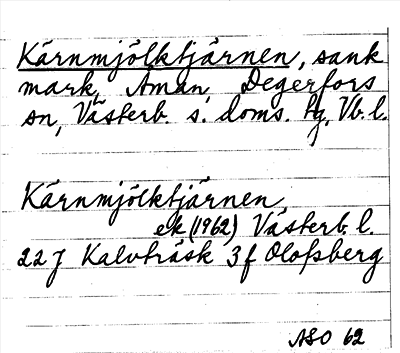 Kärnmjölktjärnen, sank
mark, Åman, Degerfors
sn, Västerb. s. doms. tg, Vb. l.
Kärnmjölktjärnen
ek (1962) Västerb. l.
22 J Kalvträsk 3 f Olofsberg
ASO 62